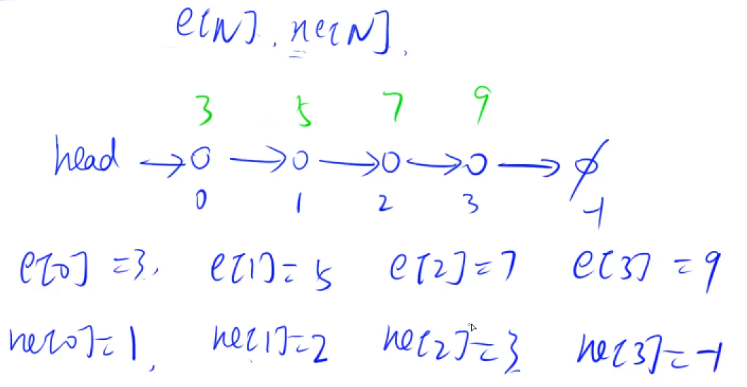 e[N], ne[N].
3 5 7 9
head → o → o → o → o → ∅
0 1 2 3 -1
e[0]=3, e[1]=5 e[2]=7 e[3]=9
ne[0]=1, ne[1]=2 ne[2]=3 ne[3]=-1